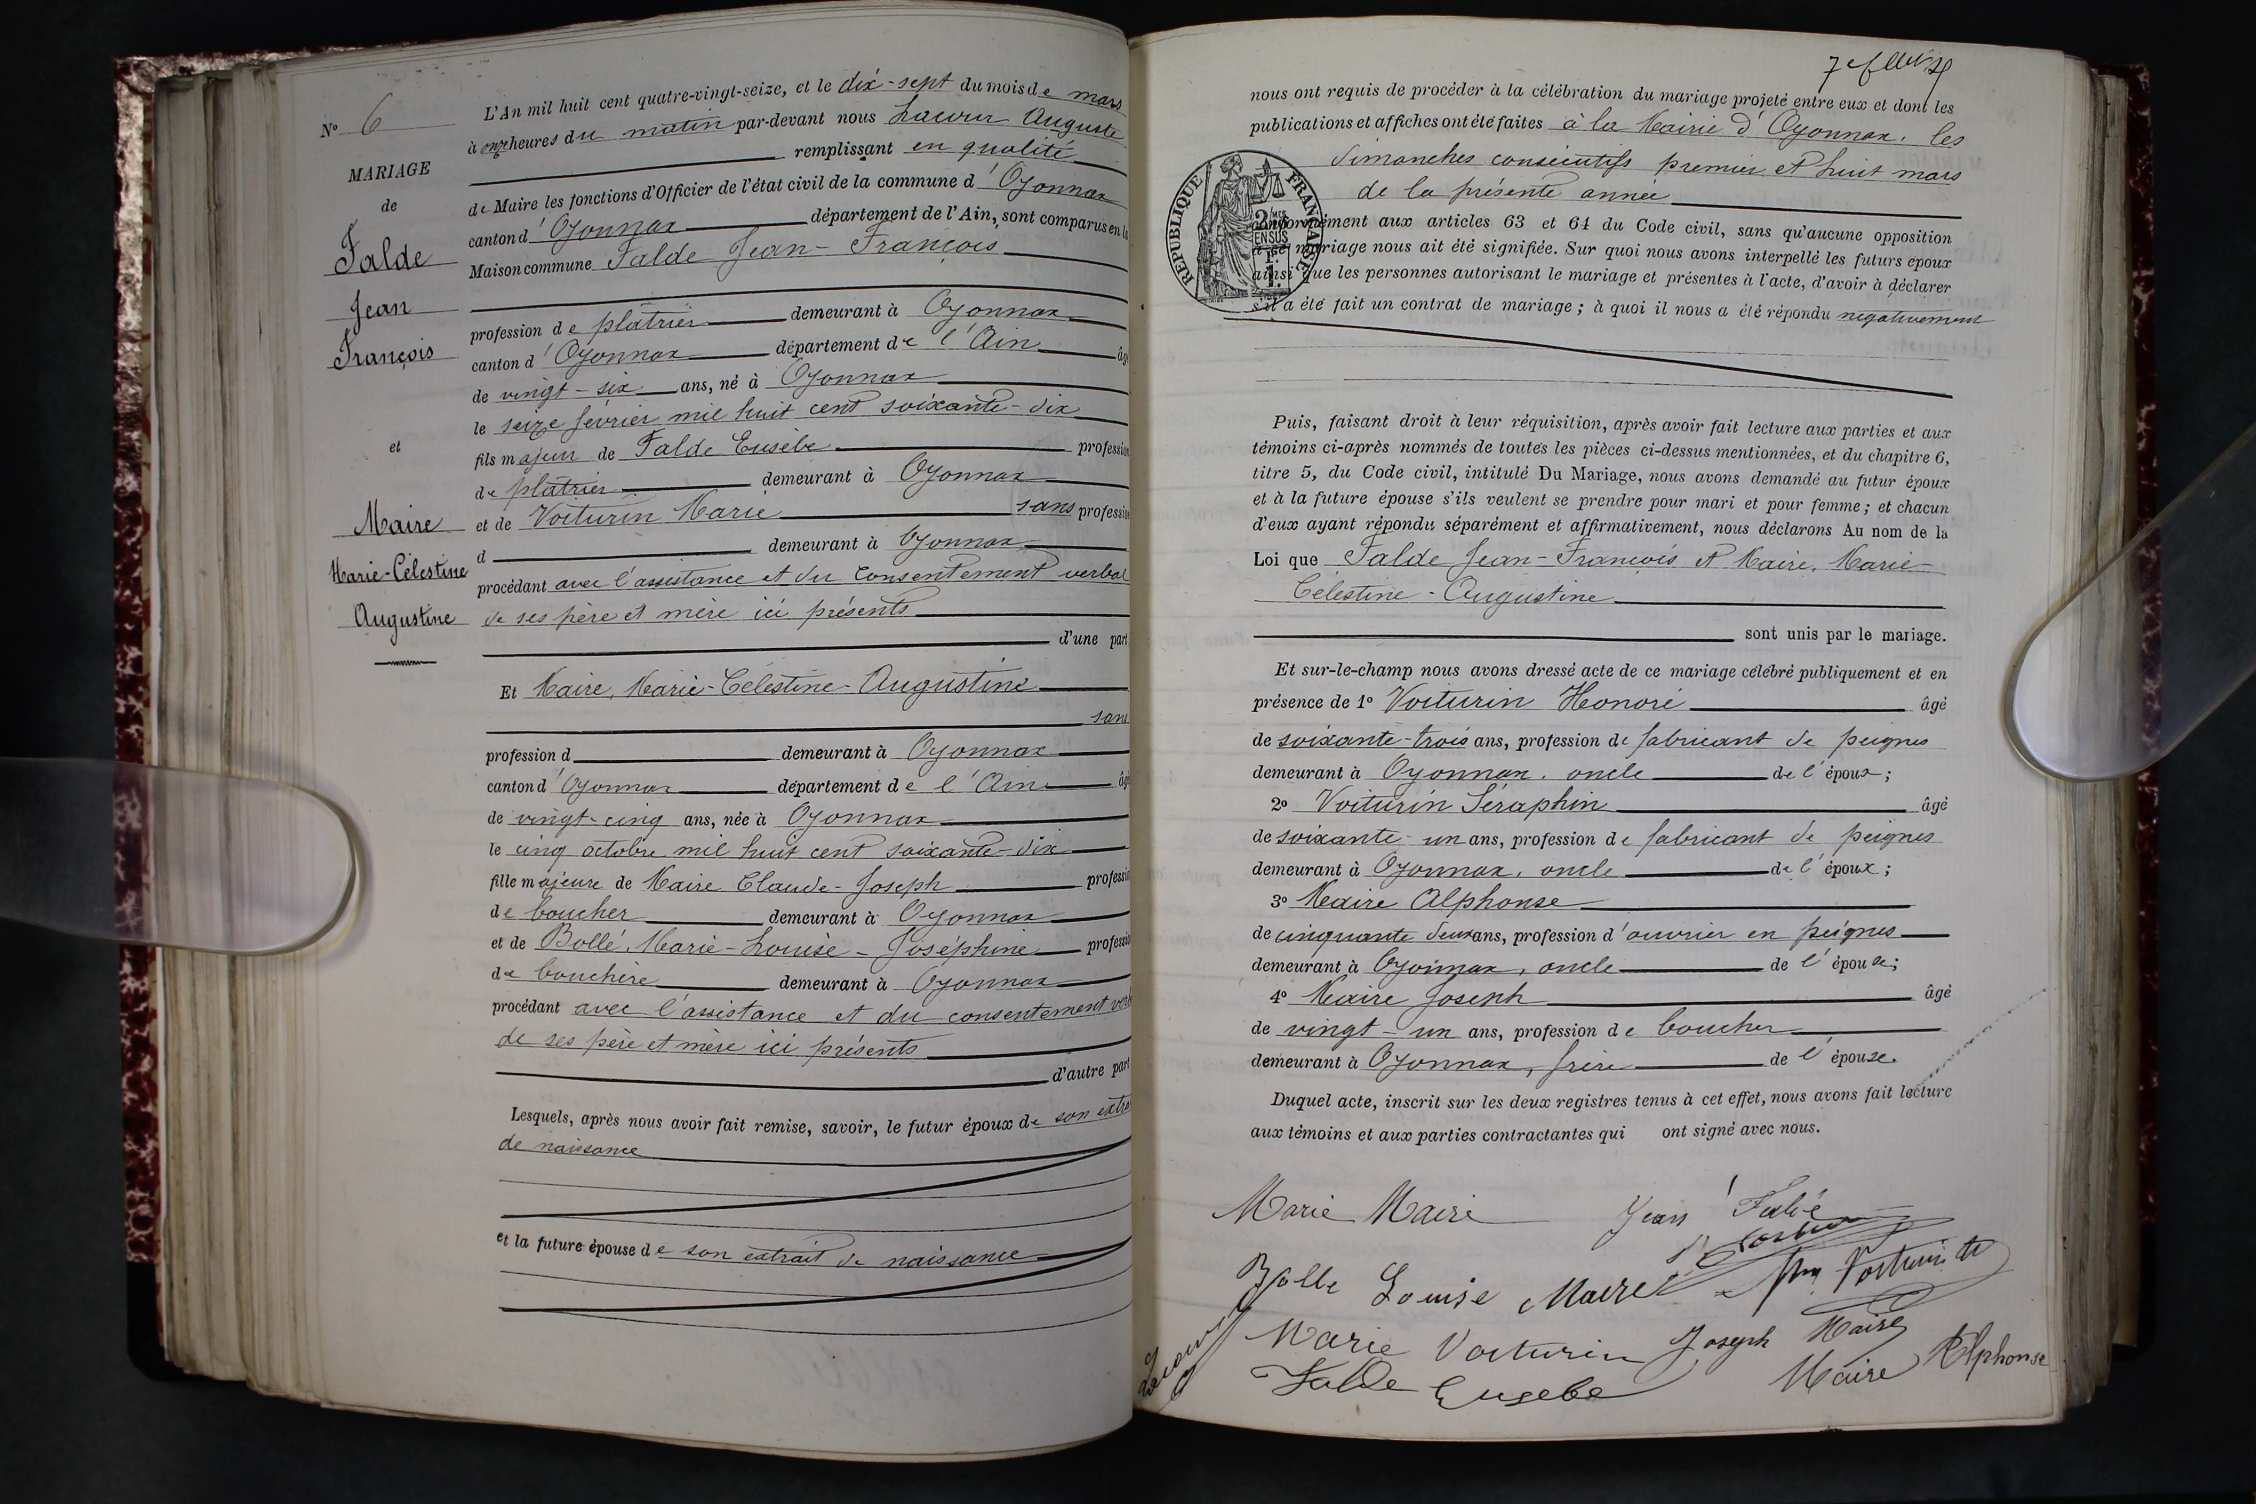 N° 6
MARIAGE
de
Falde
Jean
François
et
Maire
Marie-Célestine
Augustine
L'An mil huit cent quatre-vingt-seize, et le dix-sept du mois de mars
à onze heures du matin par-devant nous Lacour Auguste
remplissant en qualité
de Maire les fonctions d'Officier de l'état civil de la commune d'Oyonnax
canton d'Oyonnax département de l'Ain, sont comparus en la
Maison commune Falde Jean-François
profession de plâtrier demeurant à Oyonnax
canton d'Oyonnax département de l'Ain âgé
de vingt-six ans, né à Oyonnax
le seize février mil huit cent soixante-dix
fils majeur de Falde Eusèbe profession
de plâtrier demeurant à Oyonnax
et de Voiturin Marie sans profession
d demeurant à Oyonnax
procédant avec l'assistance et du consentement verbal
de ses père et mère ici présents
d'une part
Et Maire, Marie-Célestine-Augustine
sans
profession d demeurant à Oyonnax
canton d'Oyonnax département de l'Ain âgé
de vingt-cinq ans, née à Oyonnax
le cinq octobre mil huit cent soixante-dix
fille majeure de Maire Claude-Joseph profession
de boucher demeurant à Oyonnax
et de Bollé Marie-Louise-Joséphine profession
de bouchère demeurant à Oyonnax
procédant avec l'assistance et du consentement verb
de ses père et mère ici présents
d'autre part
Lesquels, après nous avoir fait remise, savoir, le futur époux de son extra
de naissance
et la future épouse de son extrait de naissance
7e f
nous ont requis de procéder à la célébration du mariage projeté entre eux et dont les
publications et affiches ont été faites à la Mairie d'Oyonnax, les
dimanches consécutifs premier et huit mars
de la présente année
RÉPUBLIQUE FRANÇAISE
conformément aux articles 63 et 64 du Code civil, sans qu'aucune opposition
à ce mariage nous ait été signifiée. Sur quoi nous avons interpellé les futurs époux
ainsi que les personnes autorisant le mariage et présentes à l'acte, d'avoir à déclarer
s'il a été fait un contrat de mariage ; à quoi il nous a été répondu négativement
Puis, faisant droit à leur réquisition, après avoir fait lecture aux parties et aux
témoins ci-après nommés de toutes les pièces ci-dessus mentionnées, et du chapitre 6,
titre 5, du Code civil, intitulé Du Mariage, nous avons demandé au futur époux
et à la future épouse s'ils veulent se prendre pour mari et pour femme ; et chacun
d'eux ayant répondu séparément et affirmativement, nous déclarons Au nom de la
Loi que Falde Jean-François et Maire, Marie-
Célestine-Augustine
sont unis par le mariage.
Et sur-le-champ nous avons dressé acte de ce mariage célébré publiquement et en
présence de 1° Voiturin Honoré âgé
de soixante-trois ans, profession de fabricant de peignes
demeurant à Oyonnax, oncle de l'époux ;
2° Voiturin Séraphin âgé
de soixante-un ans, profession de fabricant de peignes
demeurant à Oyonnax, oncle de l'époux ;
3° Maire Alphonse
de cinquante deux ans, profession d'ouvrier en peignes
demeurant à Oyonnax, oncle de l'épouse ;
4° Maire Joseph âgé
de vingt-un ans, profession de boucher
demeurant à Oyonnax, frère de l'épouse.
Duquel acte, inscrit sur les deux registres tenus à cet effet, nous avons fait lecture
aux témoins et aux parties contractantes qui ont signé avec nous.
Marie Maire Jean Falde
Bolle Louise Maire
Marie Voiturin Joseph Maire
Falde Eusebe Maire Alphonse